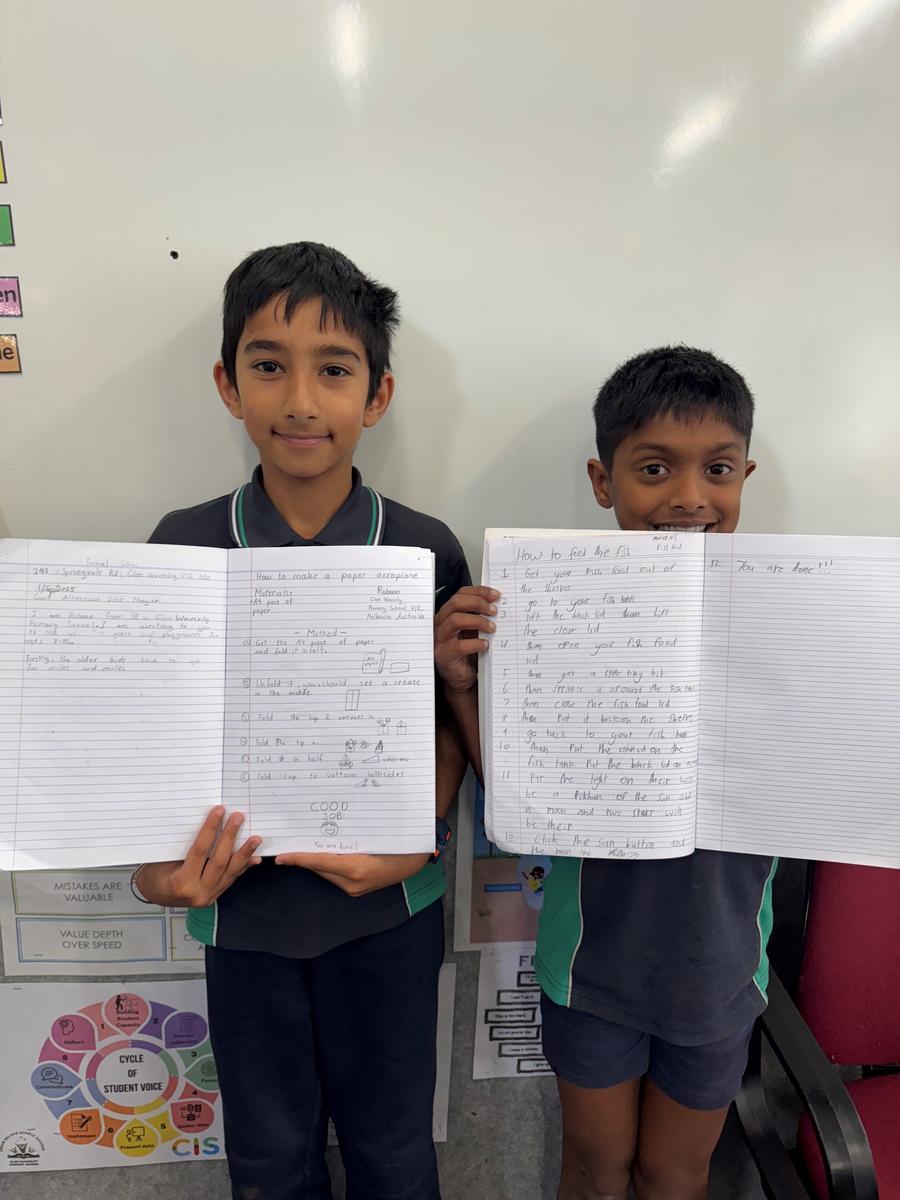 en
e
Formal
Springvale Rd, Glen Waverly VIC
1/Sep/2025
Good Afternoon Dear Mayor
I am Rohaan from 3B in Glen Waverly
Primary School. I am writing to you
local playgrounds for
ages
Firstly, the older kids have to go
for miles and miles
How to make a paper aeroplane
Materials:
A4 piece of
paper
Rohaan
Glen Waverly
Primary School VIC,
Melbourne Australia
- Method -
1 Get the A4 piece of paper
and fold it in half.
A4
paper
2 Unfold it, you should see a crease
in the middle.
3 Fold the top 2 corners in
4 Fold the top
5 Fold in half
6 Fold top to bottom both sides
GOOD
JOB
You are done!
How to feed the fish
Materials
Fish food
1 Get your fish food out of
the shelves
2 go to your fish tank
3 lift the black lid than lift
the clear lid
4 than open your fish food
lid
5 than get a little tiny bit
6 than sprinkle it around the fish tank
7 than close the fish food lid
8 than Put it back on the shelve
9 go back to your fish tank
10 than Put the clear lid on the
fish tank Put the black lid on
11 Put the light on their will
be a Pikhure of the sun and
a moon and two stars will
be their
12 Click the sun button and
the moon
12 You are done!!!
MISTAKES ARE
VALUABLE
VALUE DEPTH
OVER SPEED
CYCLE
OF
STUDENT VOICE
Building
Student
Capacity
1
2
3
Gather data
5
Present data
6
Implement
7
Communicate
8
Reflect
CIS